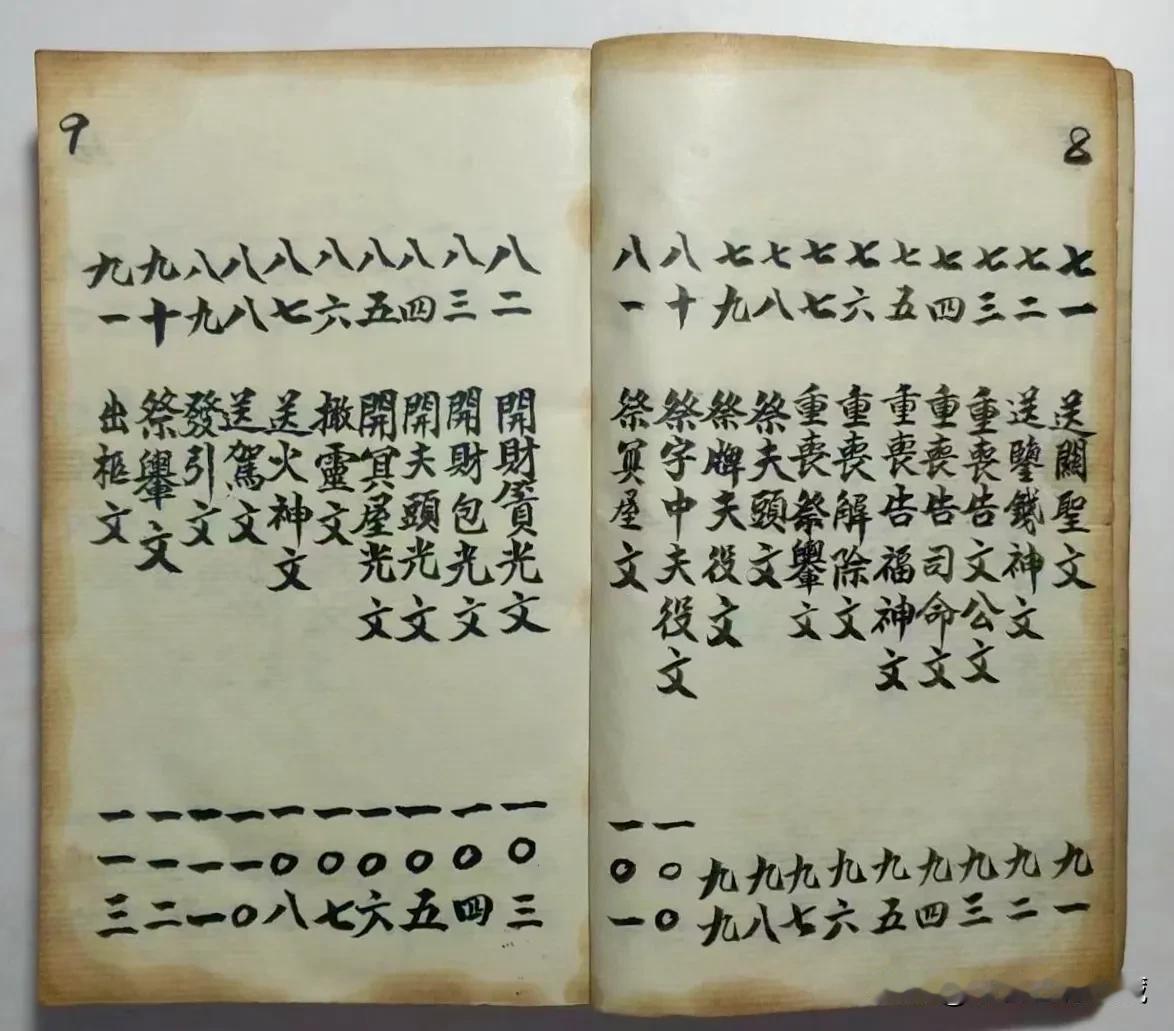 8
七一 送關聖文 九一
七二 送鑒錢神文 九二
七三 重喪告文公文 九三
七四 重喪告司命文 九四
七五 重喪告福神文 九五
七六 重喪解除文 九六
七七 重喪祭轝文 九七
七八 祭夫頭文 九八
七九 祭牌夫役文 九九
八十 祭字中夫役文 一〇〇
八一 祭冥屋文 一〇一
9
八二 開財光文 一〇三
八三 開財包光文 一〇四
八四 開夫頭光文 一〇五
八五 開冥屋光文 一〇六
八六 撤靈文 一〇七
八七 送火神文 一〇八
八八 送駕文 一一〇
八九 發引文 一一一
九十 祭轝文 一一二
九一 出柩文 一一三